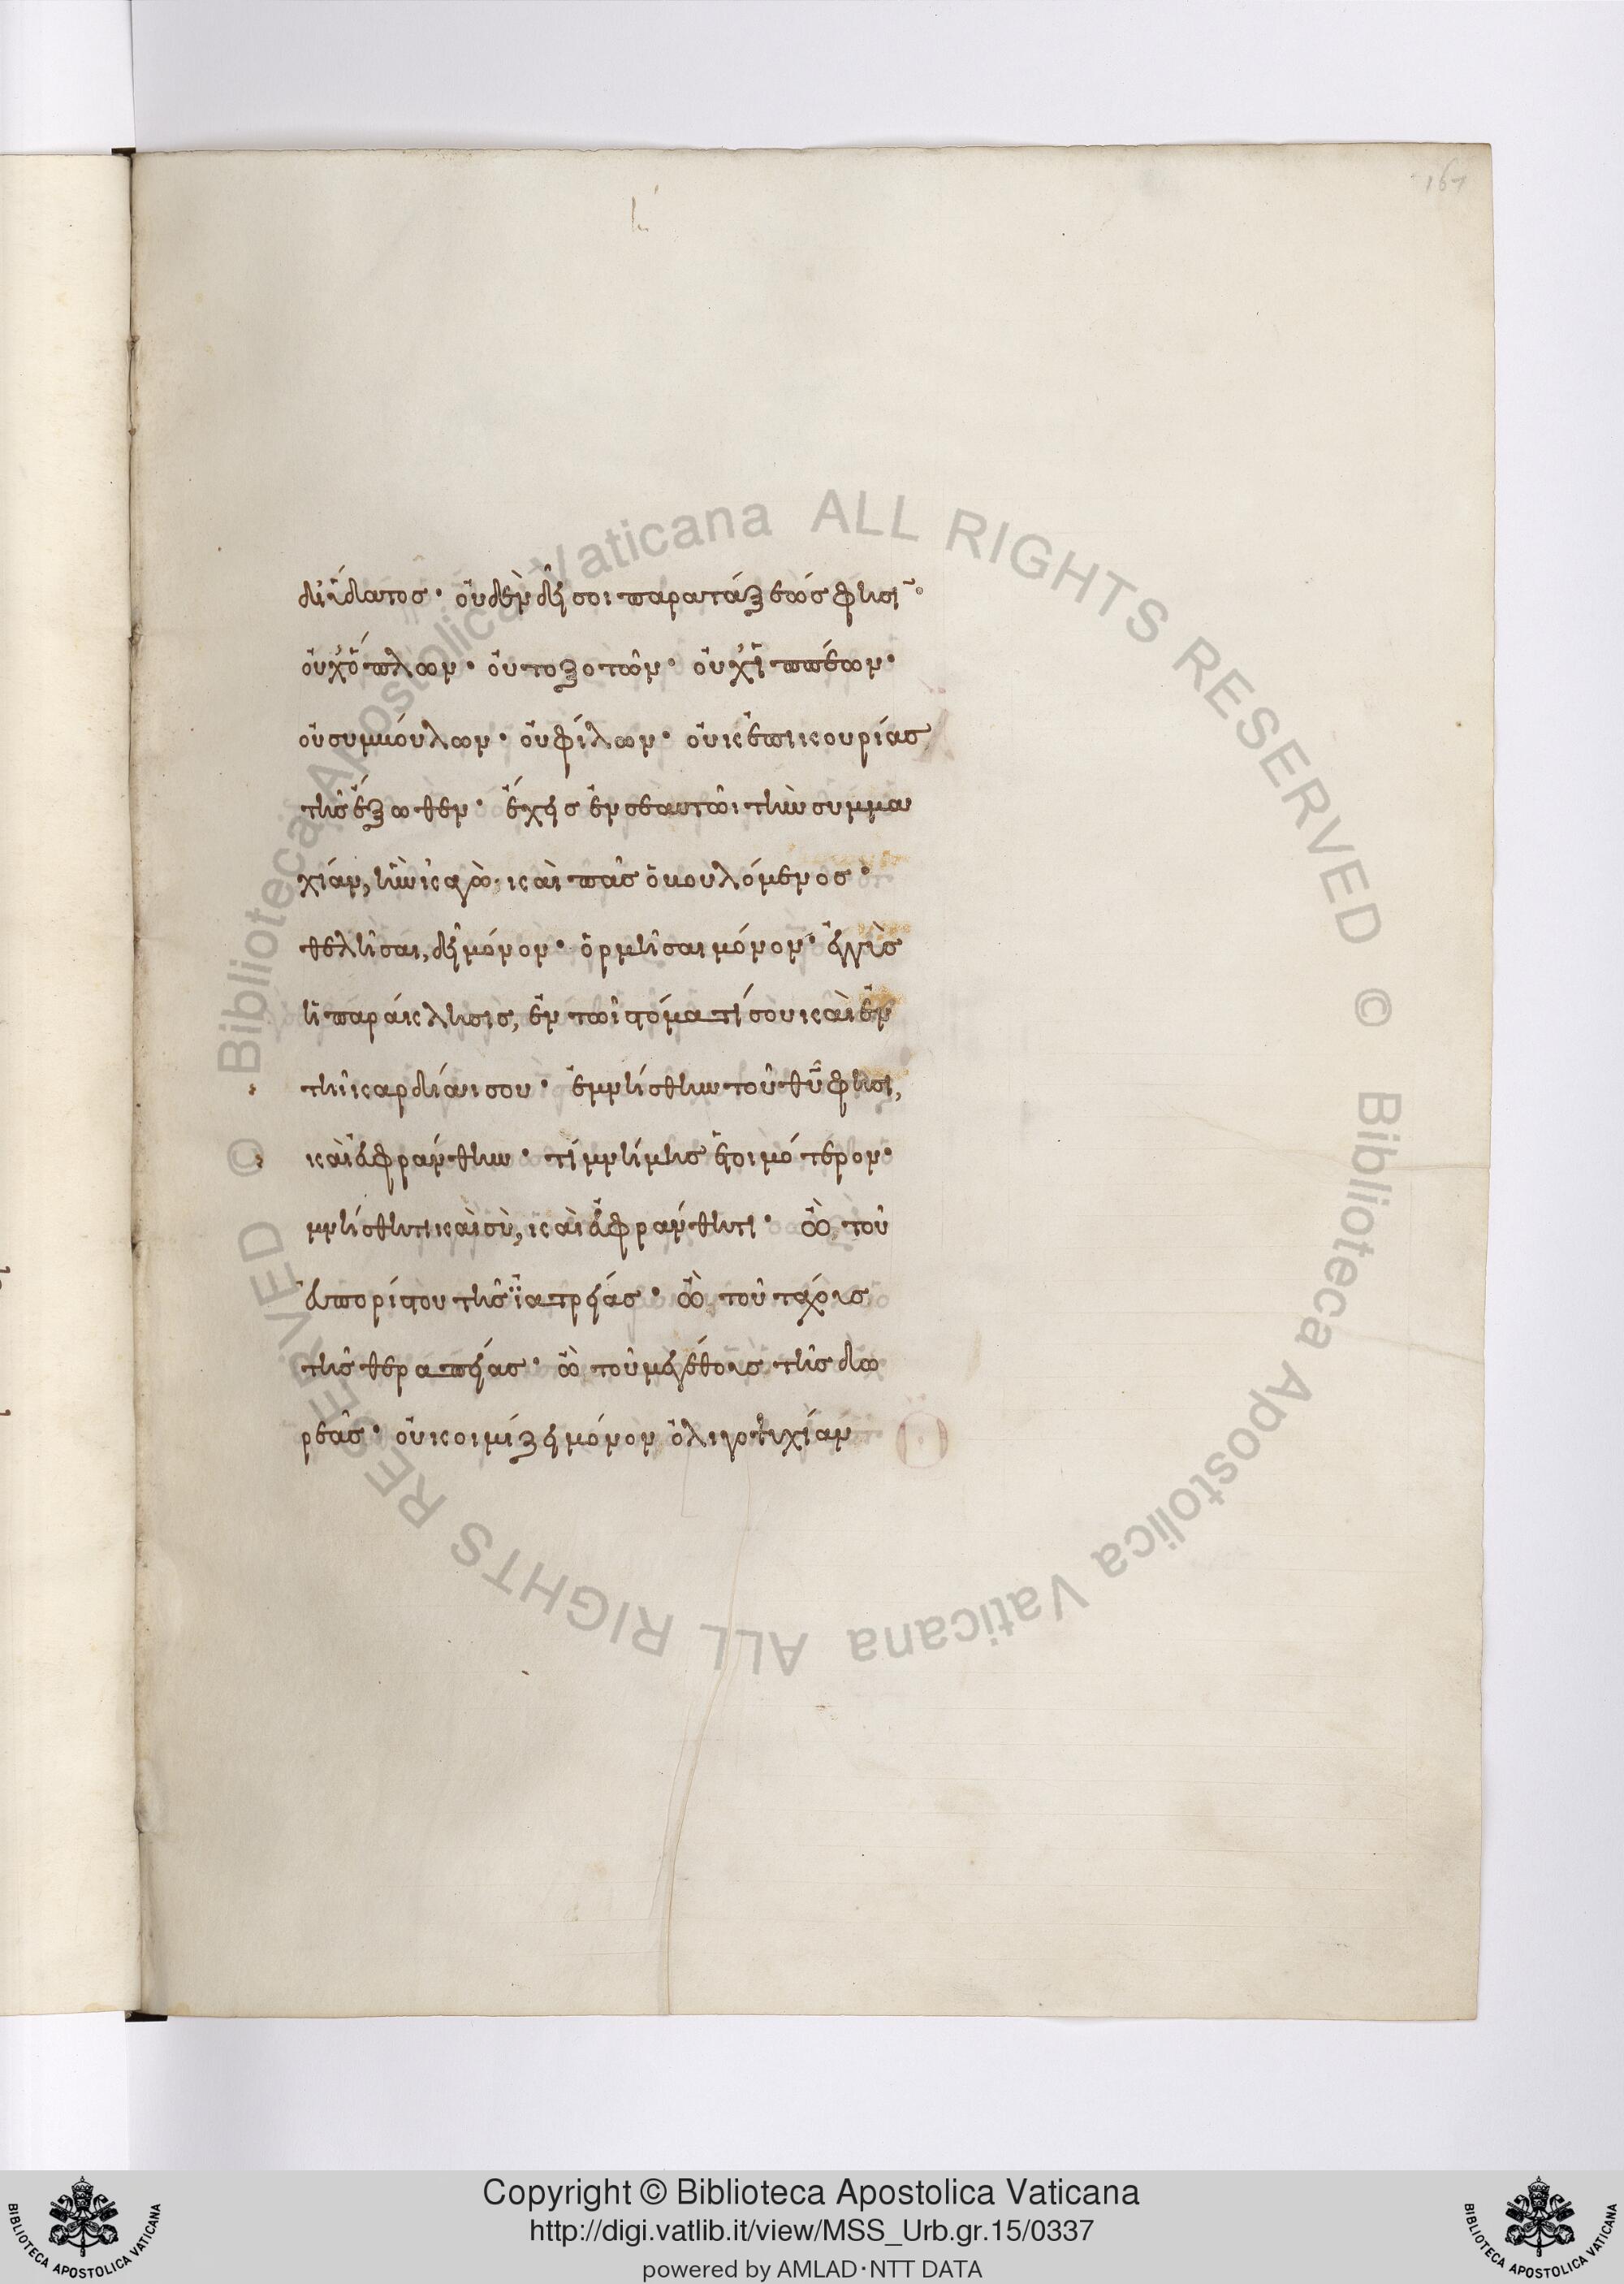 167
δι' ὕδατος· οὐδὲν δεῖ σοι παρατάξεώς φησιν·
οὐχ' ὅπλων· οὐ τοξοτῶν· οὐχ' ἱππέων·
οὐ συμβούλων· οὐ φίλων· οὐκ ἐπικουρίας
τῆς ἔξωθεν· ἔχεις ἐν σεαυτῶι τὴν συμμα
χίαν, ἣν κἀγὼ· καὶ πᾶς ὁ βουλόμενος·
θελῆσαι, δεῖ μόνον· ὁρμῆσαι μόνον· ἐγγὺς
ἡ παράκλησις, ἐν τῶι στόματί σου καὶ ἐν
τῆι καρδίαι σου· ἐμνήσθην τοῦ θῡ φησι,
καὶ εὐφράνθην· τί μνήμης ἑτοιμότερον·
μνήσθητι καὶ σὺ, καὶ εὐφράνθητι· ὢ τοῦ
εὐπορίστου τῆς ἰατρείας· ὢ τοῦ τάχους
τῆς θεραπείας· ὢ τοῦ μεγέθους τῆς δω
ρεᾶς· οὐ κοιμίζει μόνον ὀλιγοψυχίαν
Biblioteca Apostolica Vaticana ALL RIGHTS RESERVED ©
Biblioteca Apostolica Vaticana ALL RIGHTS RESERVED ©
Copyright © Biblioteca Apostolica Vaticana
http://digi.vatlib.it/view/MSS_Urb.gr.15/0337
powered by AMLAD·NTT DATA
BIBLIOTECA APOSTOLICA VATICANA
BIBLIOTECA APOSTOLICA VATICANA